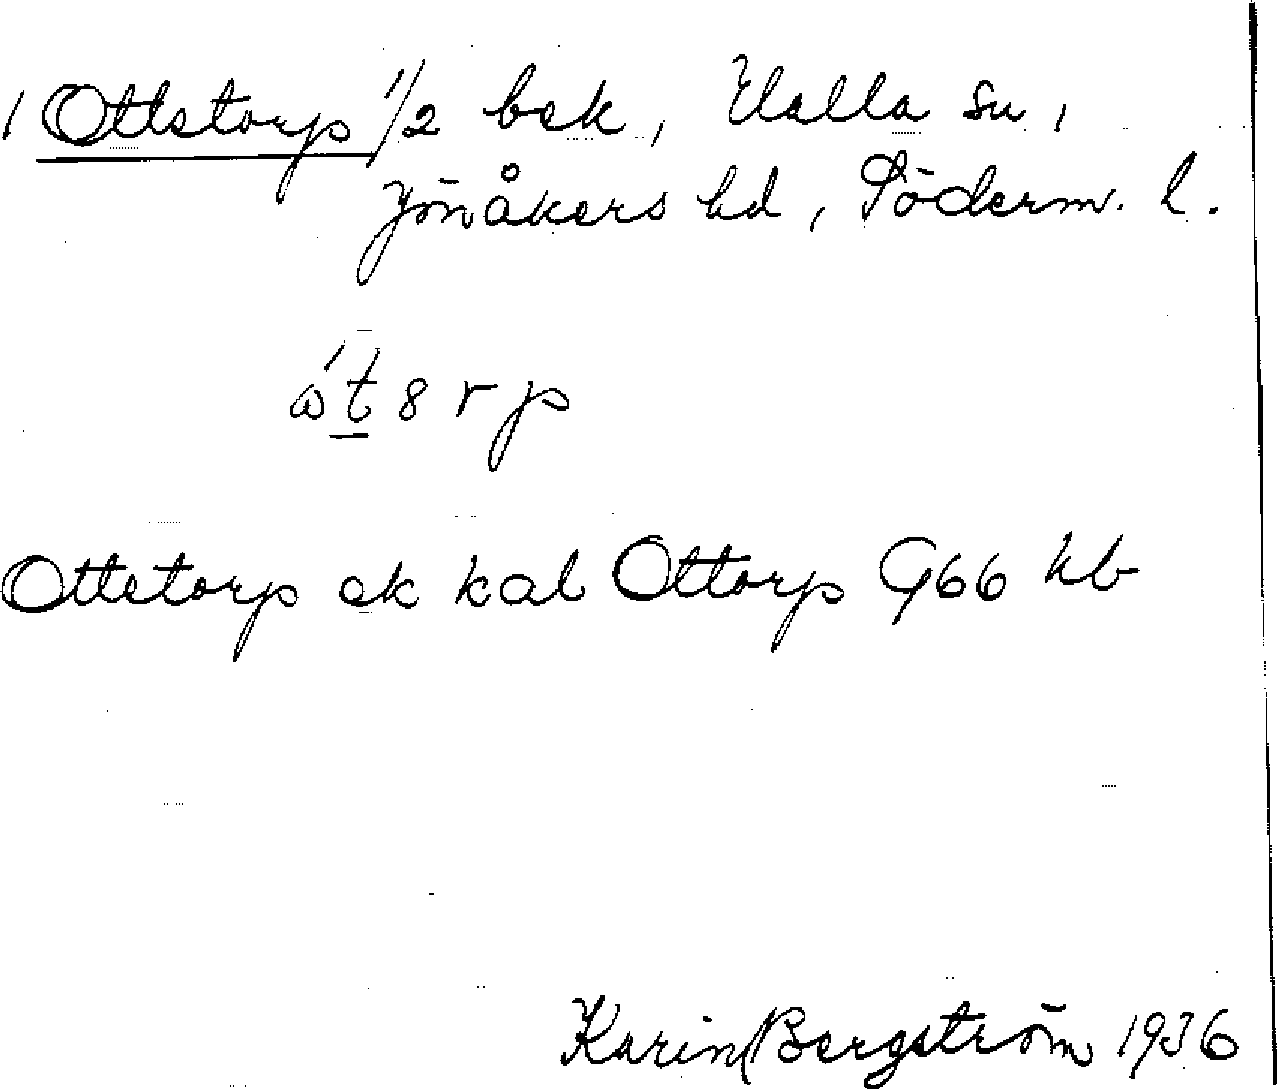 1 Ottstorp 1/2 bsk, Halla sn,
Jönåkers hd, Söderm. l.
ó t 8 r p
Ottstorp ek kal Ottorp G66 hb
Karin Bergström 1936